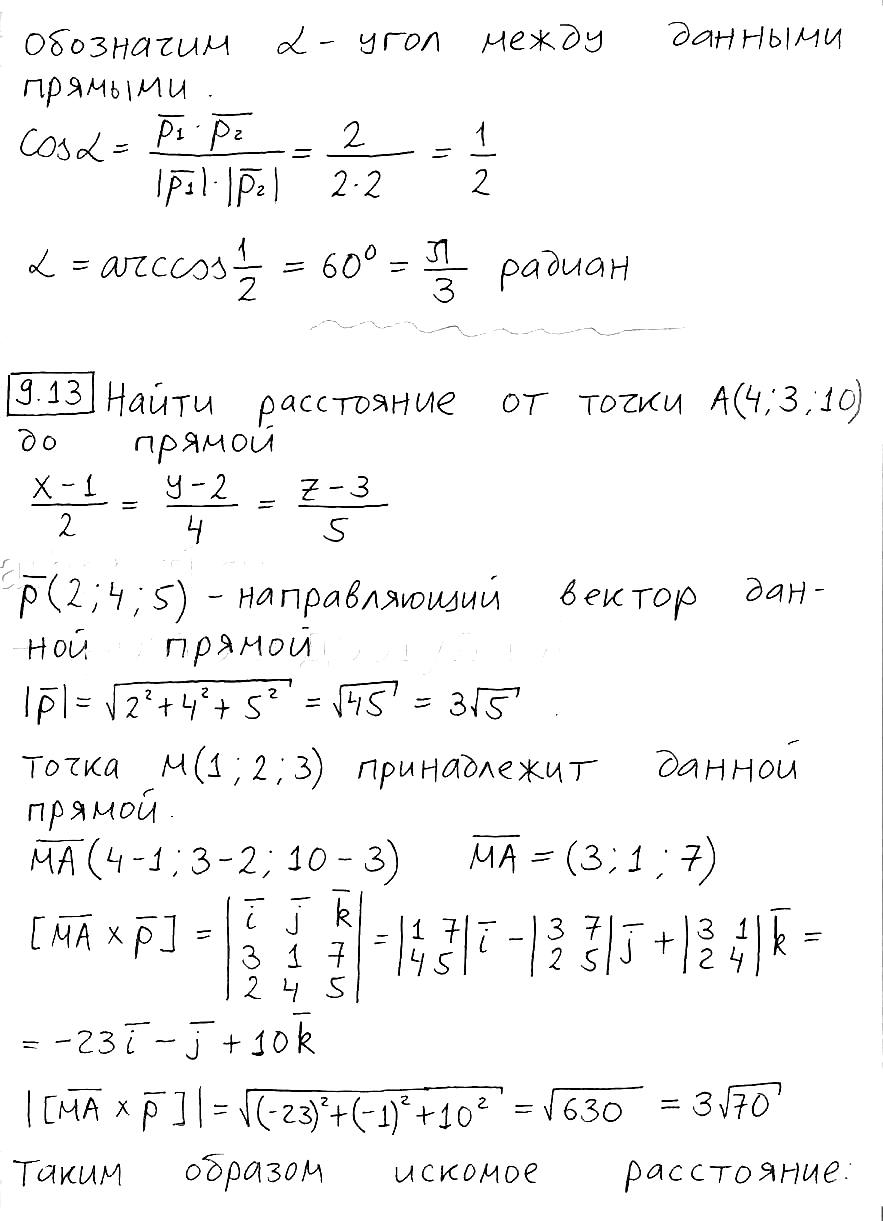 Обозначим α - угол между данными
прямыми.
cosα = p̅₁ · p̅₂ / |p̅₁|·|p̅₂| = 2 / 2·2 = 1/2
α = arccos 1/2 = 60⁰ = π/3 радиан
9.13 Найти расстояние от точки A(4;3;10)
до прямой
x-1/2 = y-2/4 = z-3/5
p̅(2;4;5) - направляющий вектор дан-
ной прямой
|p̅| = √(2²+4²+5²) = √45 = 3√5
Точка M(1;2;3) принадлежит данной
прямой.
M̅A̅(4-1;3-2;10-3) M̅A̅ = (3;1;7)
[M̅A̅ × p̅] = |i̅ j̅ k̅; 3 1 7; 2 4 5| = |1 7; 4 5| i̅ - |3 7; 2 5| j̅ + |3 1; 2 4| k̅ =
= -23i̅ - j̅ + 10k̅
|[M̅A̅ × p̅]| = √((-23)²+(-1)²+10²) = √630 = 3√70
Таким образом искомое расстояние: